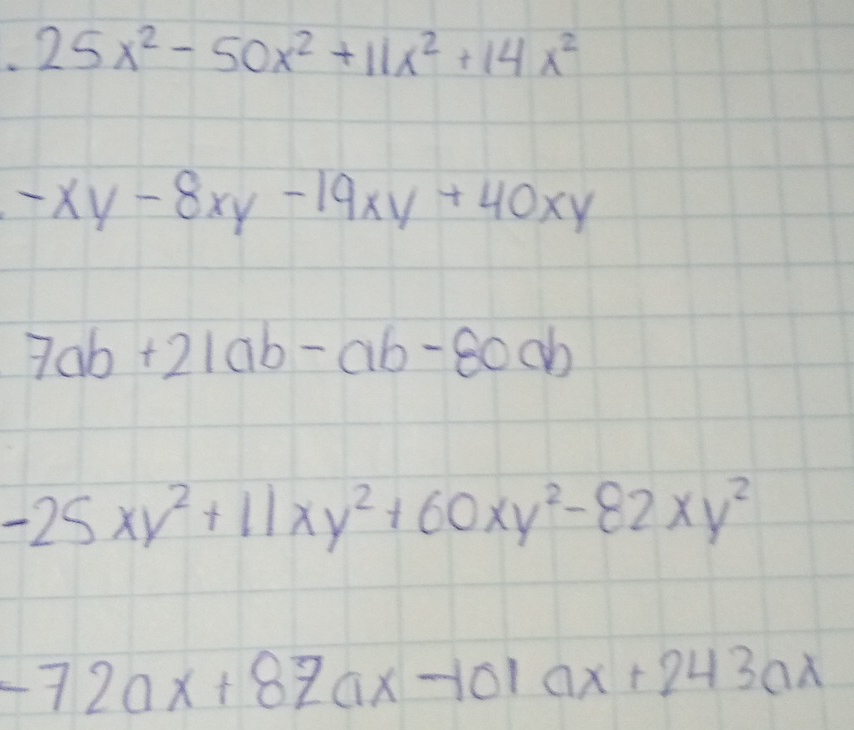 . 25x² - 50x² + 11x² + 14x²
-xy - 8xy - 19xy + 40xy
7ab + 21ab - ab - 80ab
-25xy² + 11xy² + 60xy² - 82xy²
-72ax + 87ax - 101ax + 243ax